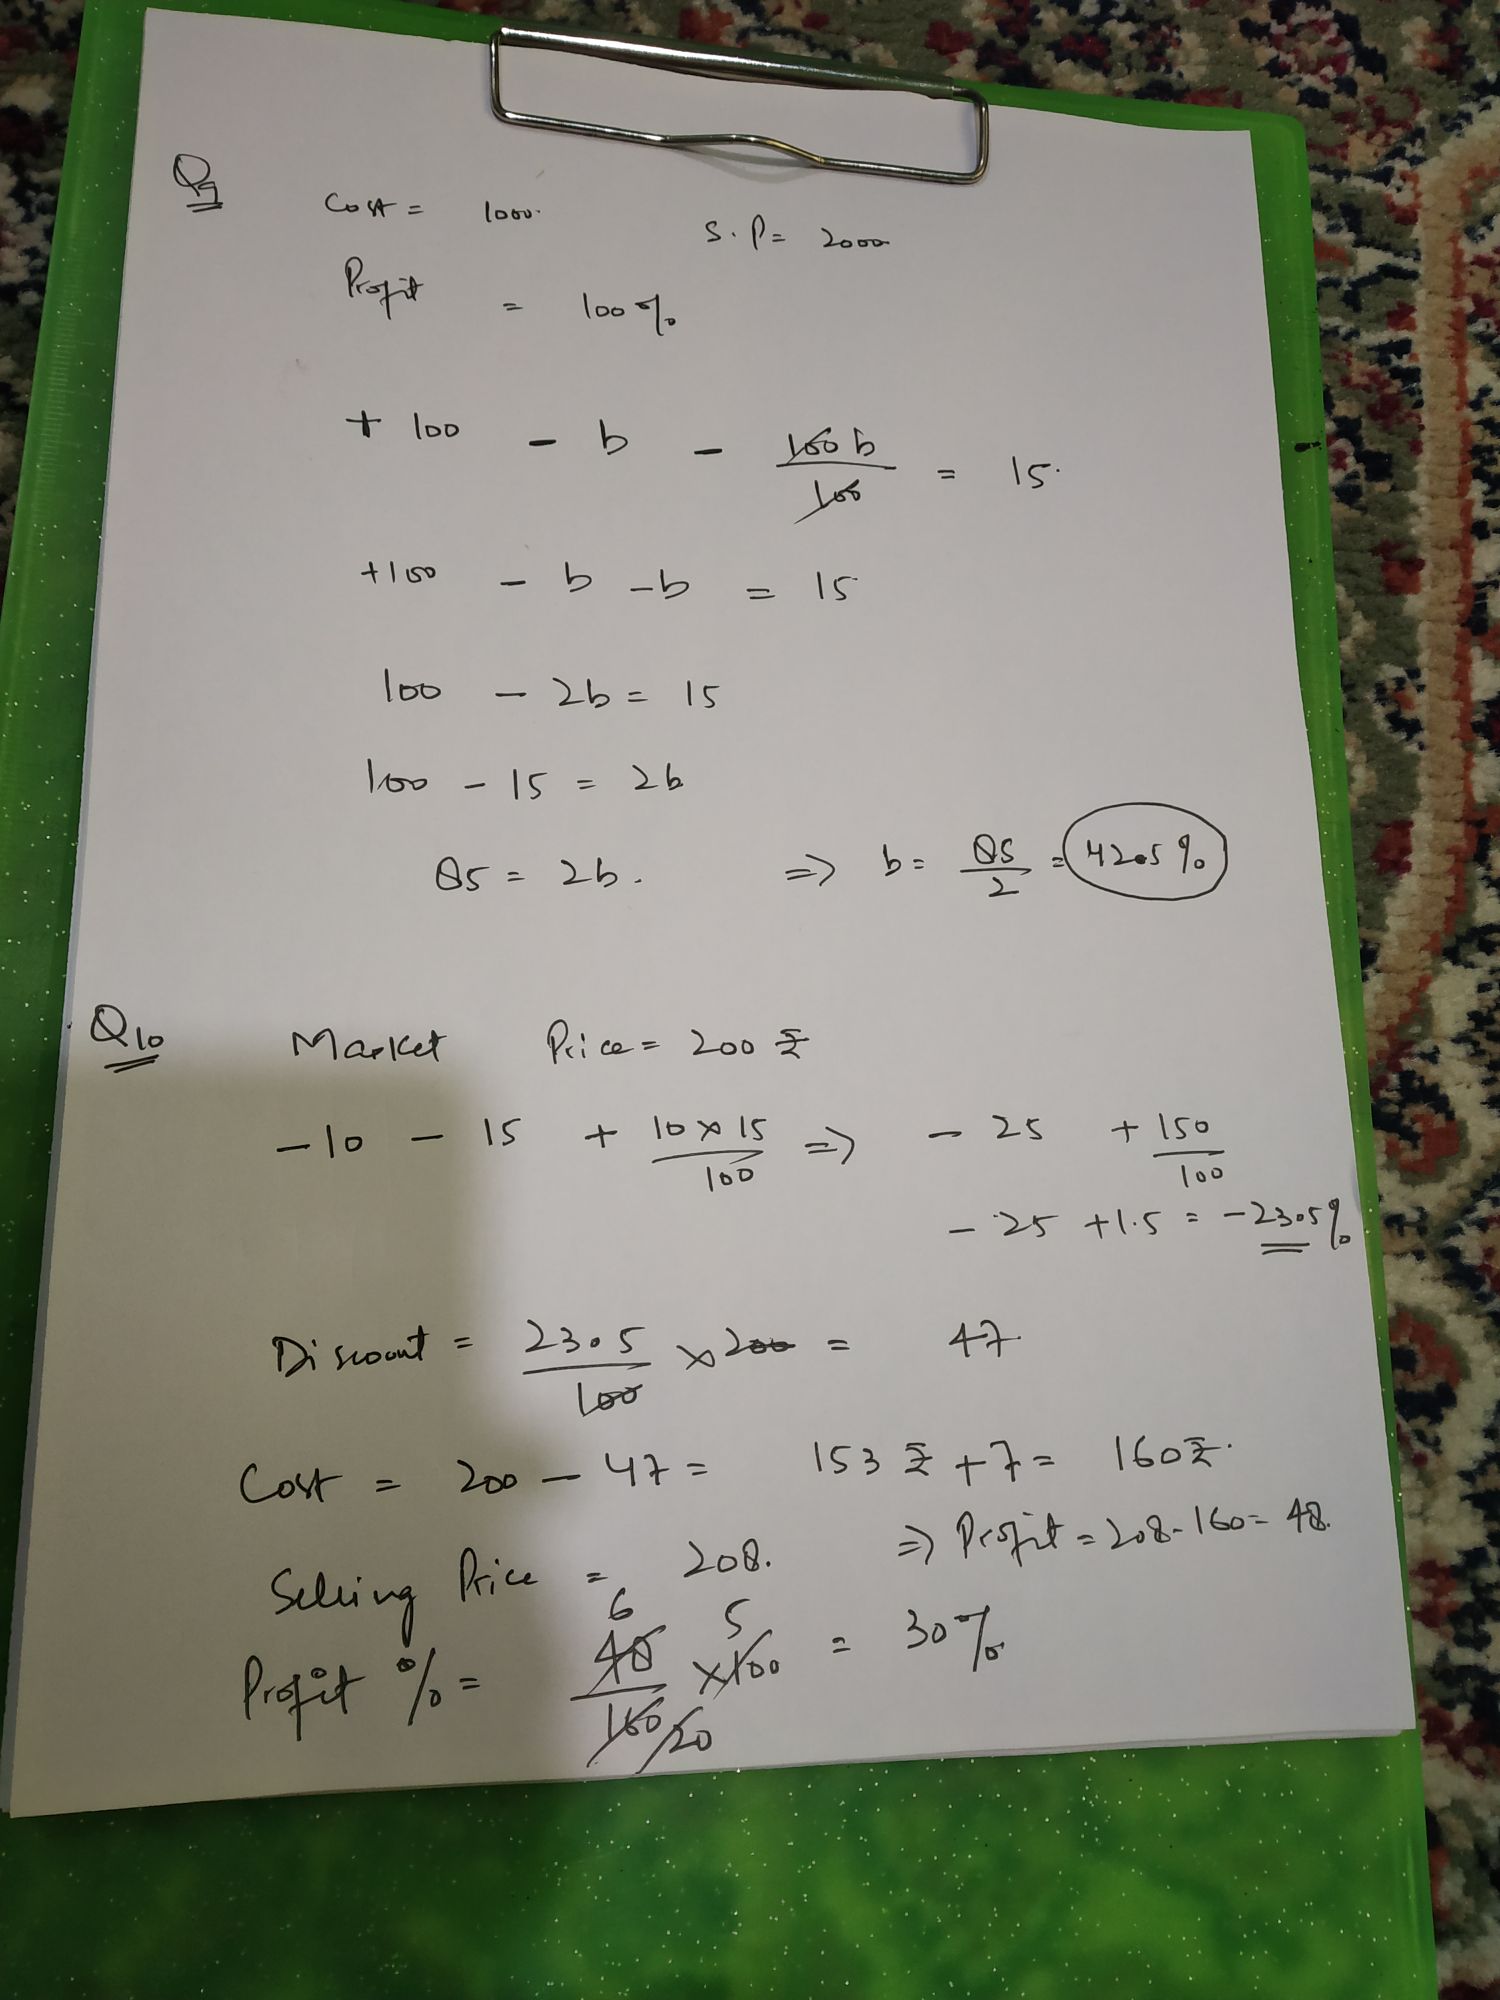 Q9
Cost = 1000. S.P = 2000
Profit = 100%
+ 100 - b - 100b/100 = 15.
+100 - b - b = 15
100 - 2b = 15
100 - 15 = 2b
85 = 2b. => b = 85/2 = 42.5%
Q10 Market Price = 200 ₹
-10 - 15 + 10x15/100 => - 25 + 150/100
- 25 + 1.5 = -23.5%
Discount = 23.5/100 x 200 = 47.
Cost = 200 - 47 = 153 ₹ + 7 = 160 ₹.
Selling Price = 208. => Profit = 208 - 160 = 48.
6 5
Profit % = 48/160 x100 = 30%
20